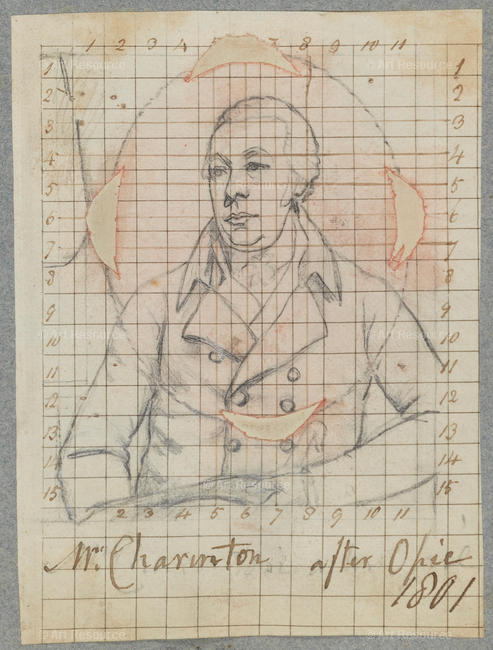 1 2 3 4 5 7 8 9 10 11
1 1
2 2
3 3
4 4
5 5
6 6
7 7
8 8
9 9
10 10
11 11
12 12
13 13
14 14
15 15
2 3 4 5 6 7 8 9 10 11
Mr. Charinton after Opie
1801
© Art Resource